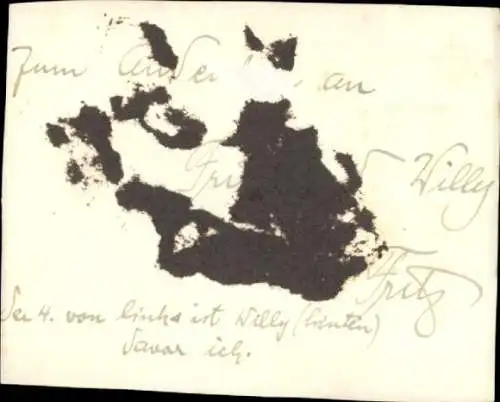 Zum Anden an
Fri d Willy
Fritz
Der 4. von links ist Willy (hinten)
davor ich.